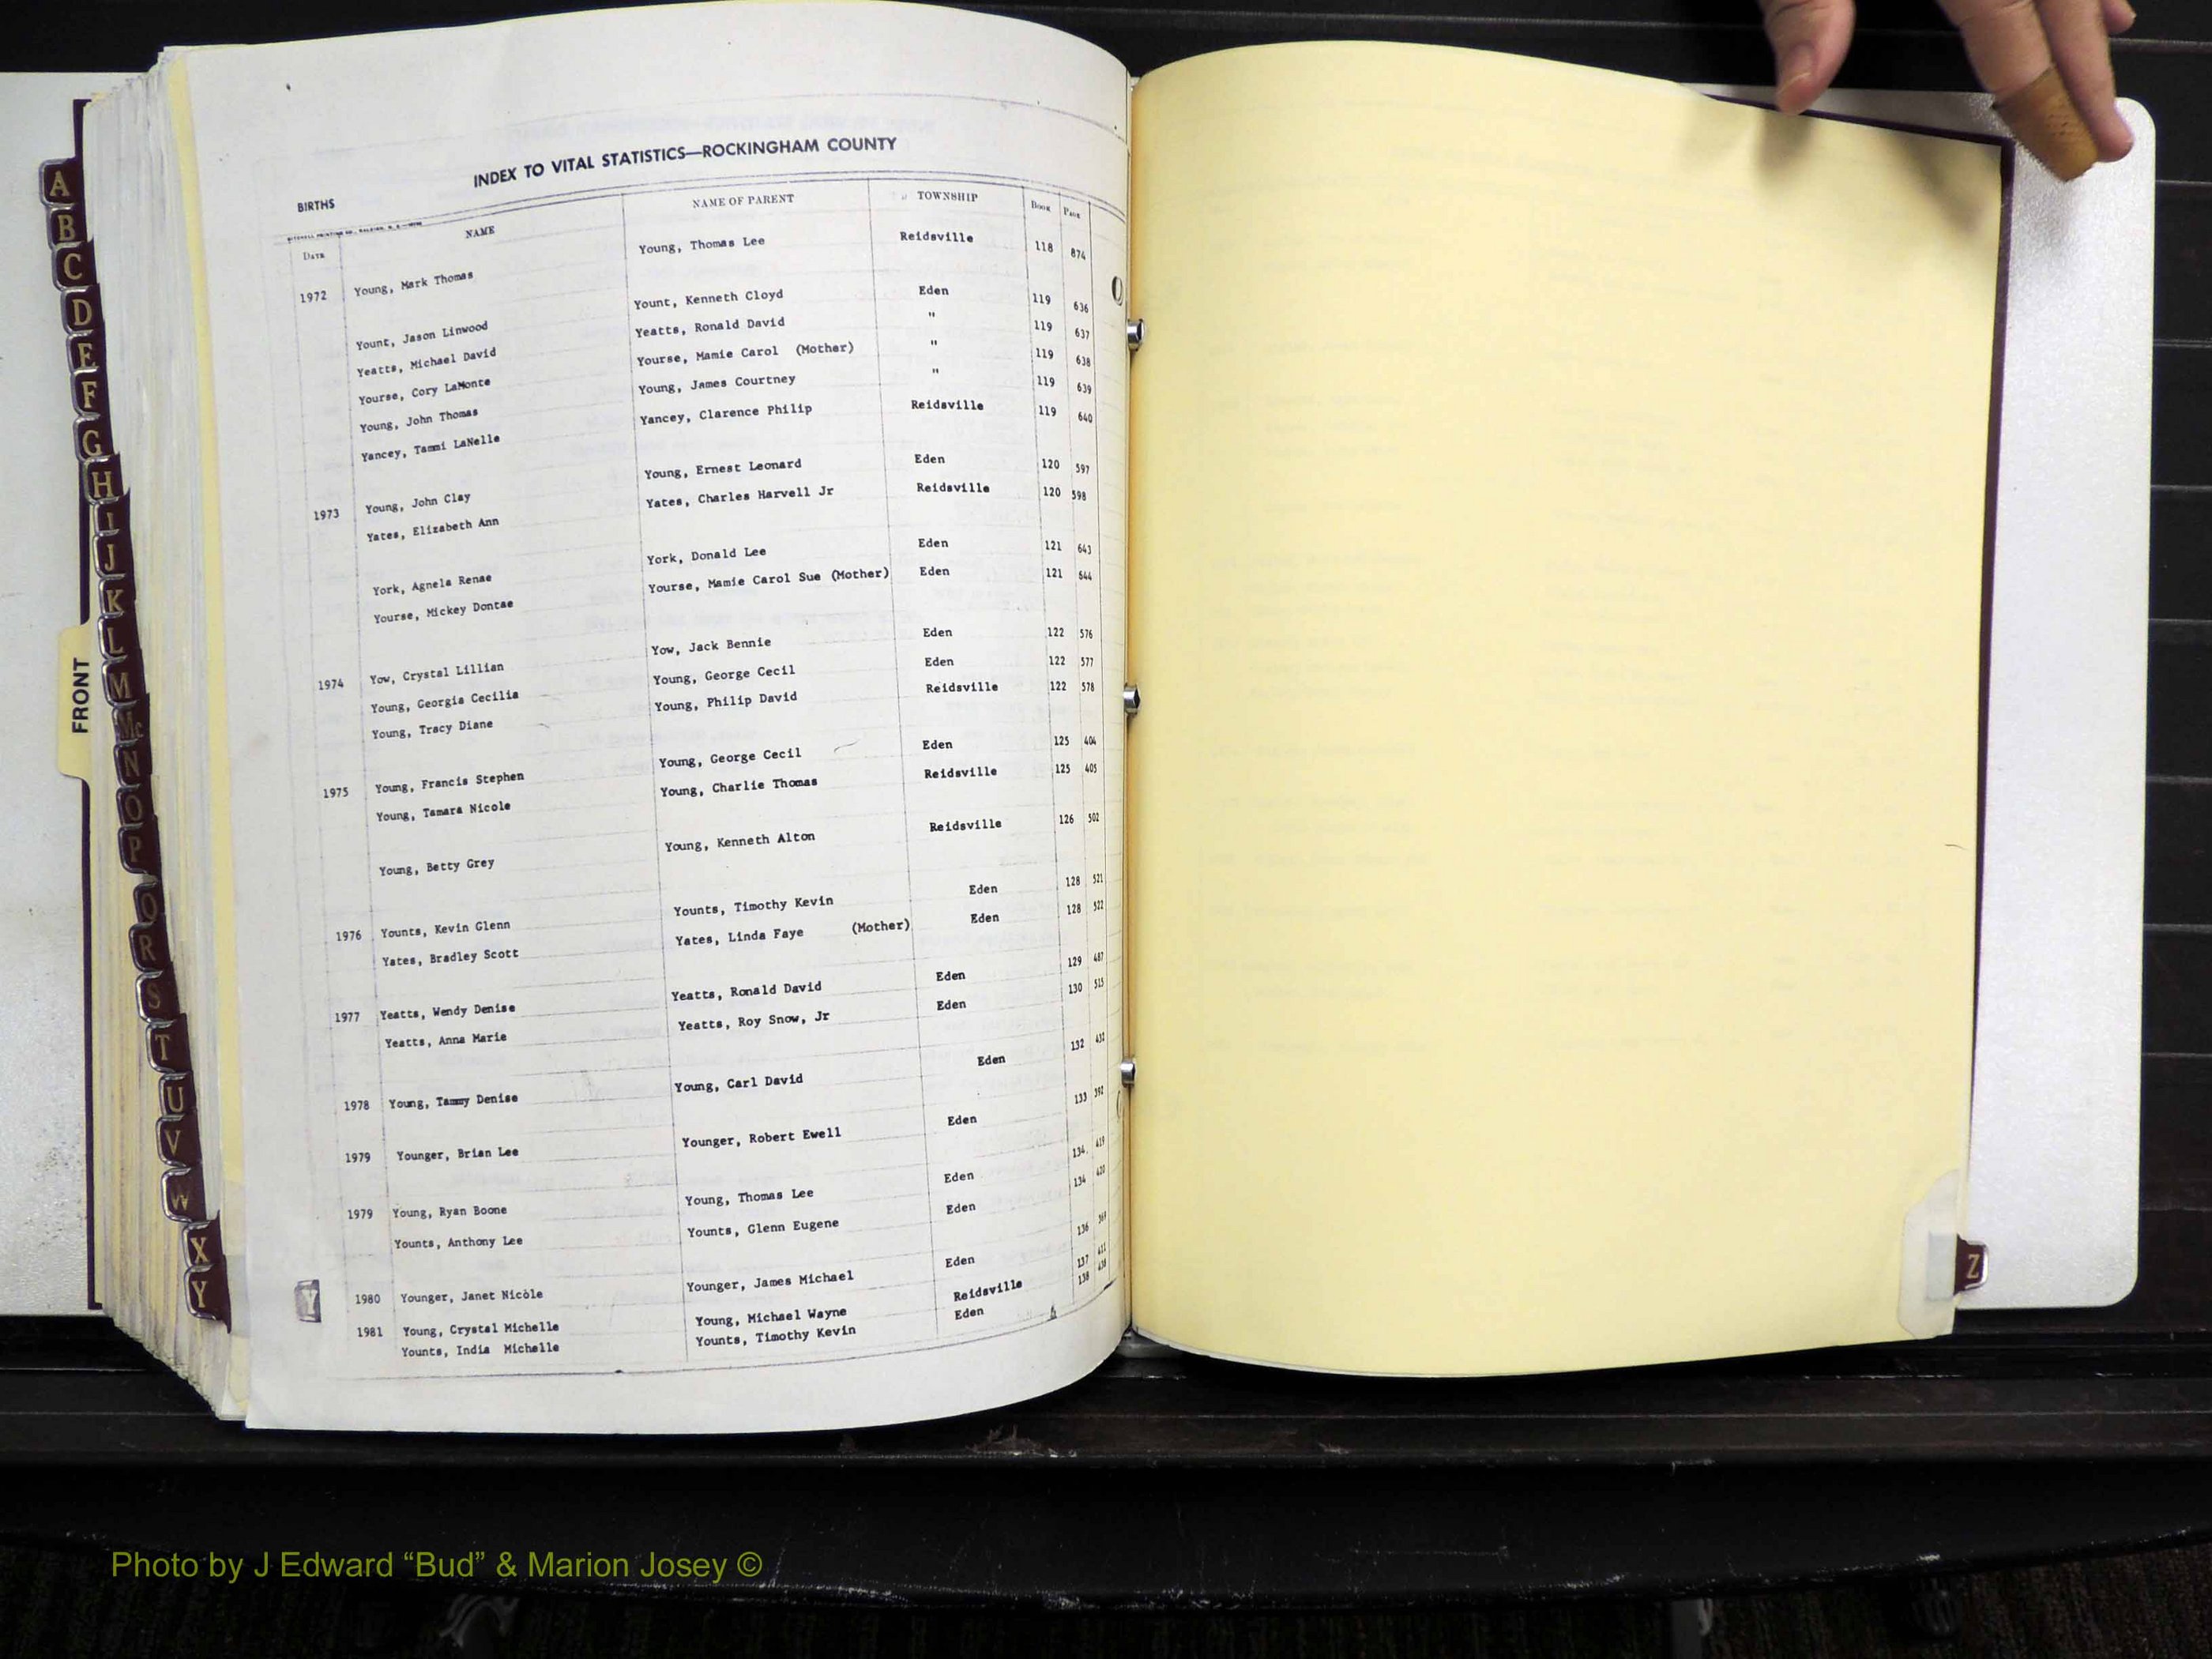 INDEX TO VITAL STATISTICS—ROCKINGHAM COUNTY
BIRTHS
DATE NAME NAME OF PARENT TOWNSHIP BOOK PAGE
1972 Young, Mark Thomas Young, Thomas Lee Reidsville 118 874
Yount, Jason Linwood Yount, Kenneth Cloyd Eden 119 636
Yeatts, Michael David Yeatts, Ronald David " 119 637
Yourse, Cory LaMonte Yourse, Mamie Carol (Mother) " 119 638
Young, John Thomas Young, James Courtney " 119 639
Yancey, Tammi LaNelle Yancey, Clarence Philip Reidsville 119 640
1973 Young, John Clay Young, Ernest Leonard Eden 120 597
Yates, Elizabeth Ann Yates, Charles Harvell Jr Reidsville 120 598
York, Agnela Renae York, Donald Lee Eden 121 643
Yourse, Mickey Dontae Yourse, Mamie Carol Sue (Mother) Eden 121 644
1974 Yow, Crystal Lillian Yow, Jack Bennie Eden 122 576
Young, Georgia Cecilia Young, George Cecil Eden 122 577
Young, Tracy Diane Young, Philip David Reidsville 122 578
1975 Young, Francis Stephen Young, George Cecil Eden 125 404
Young, Tamara Nicole Young, Charlie Thomas Reidsville 125 405
Young, Betty Grey Young, Kenneth Alton Reidsville 126 502
1976 Younts, Kevin Glenn Younts, Timothy Kevin Eden 128 521
Yates, Bradley Scott Yates, Linda Faye (Mother) Eden 128 522
1977 Yeatts, Wendy Denise Yeatts, Ronald David Eden 129 487
Yeatts, Anna Marie Yeatts, Roy Snow, Jr Eden 130 515
1978 Young, Tammy Denise Young, Carl David Eden 132 432
1979 Younger, Brian Lee Younger, Robert Ewell Eden 133 392
1979 Young, Ryan Boone Young, Thomas Lee Eden 134 419
Younts, Anthony Lee Younts, Glenn Eugene Eden 134 420
1980 Younger, Janet Nicole Younger, James Michael Eden 136
1981 Young, Crystal Michelle Young, Michael Wayne Reidsville 137
Younts, India Michelle Younts, Timothy Kevin Eden 138
Y
FRONT
A
B
C
D
E
F
G
H
I
J
K
L
M
Mc
N
O
P
Q
R
S
T
U
V
W
X
Y
Z
Photo by J Edward “Bud” & Marion Josey ©